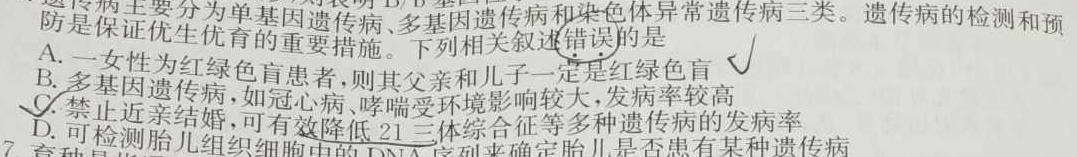 遗传病主要分为单基因遗传病、多基因遗传病和染色体异常遗传病三类。遗传病的检测和预
防是保证优生优育的重要措施。下列相关叙述错误的是
A. 一女性为红绿色盲患者,则其父亲和儿子一定是红绿色盲
B. 多基因遗传病,如冠心病、哮喘受环境影响较大,发病率较高
C. 禁止近亲结婚,可有效降低 21 三体综合征等多种遗传病的发病率
D. 可检测胎儿组织细胞中的 DNA 序列来确定胎儿是否患有某种遗传病
7. 育种是